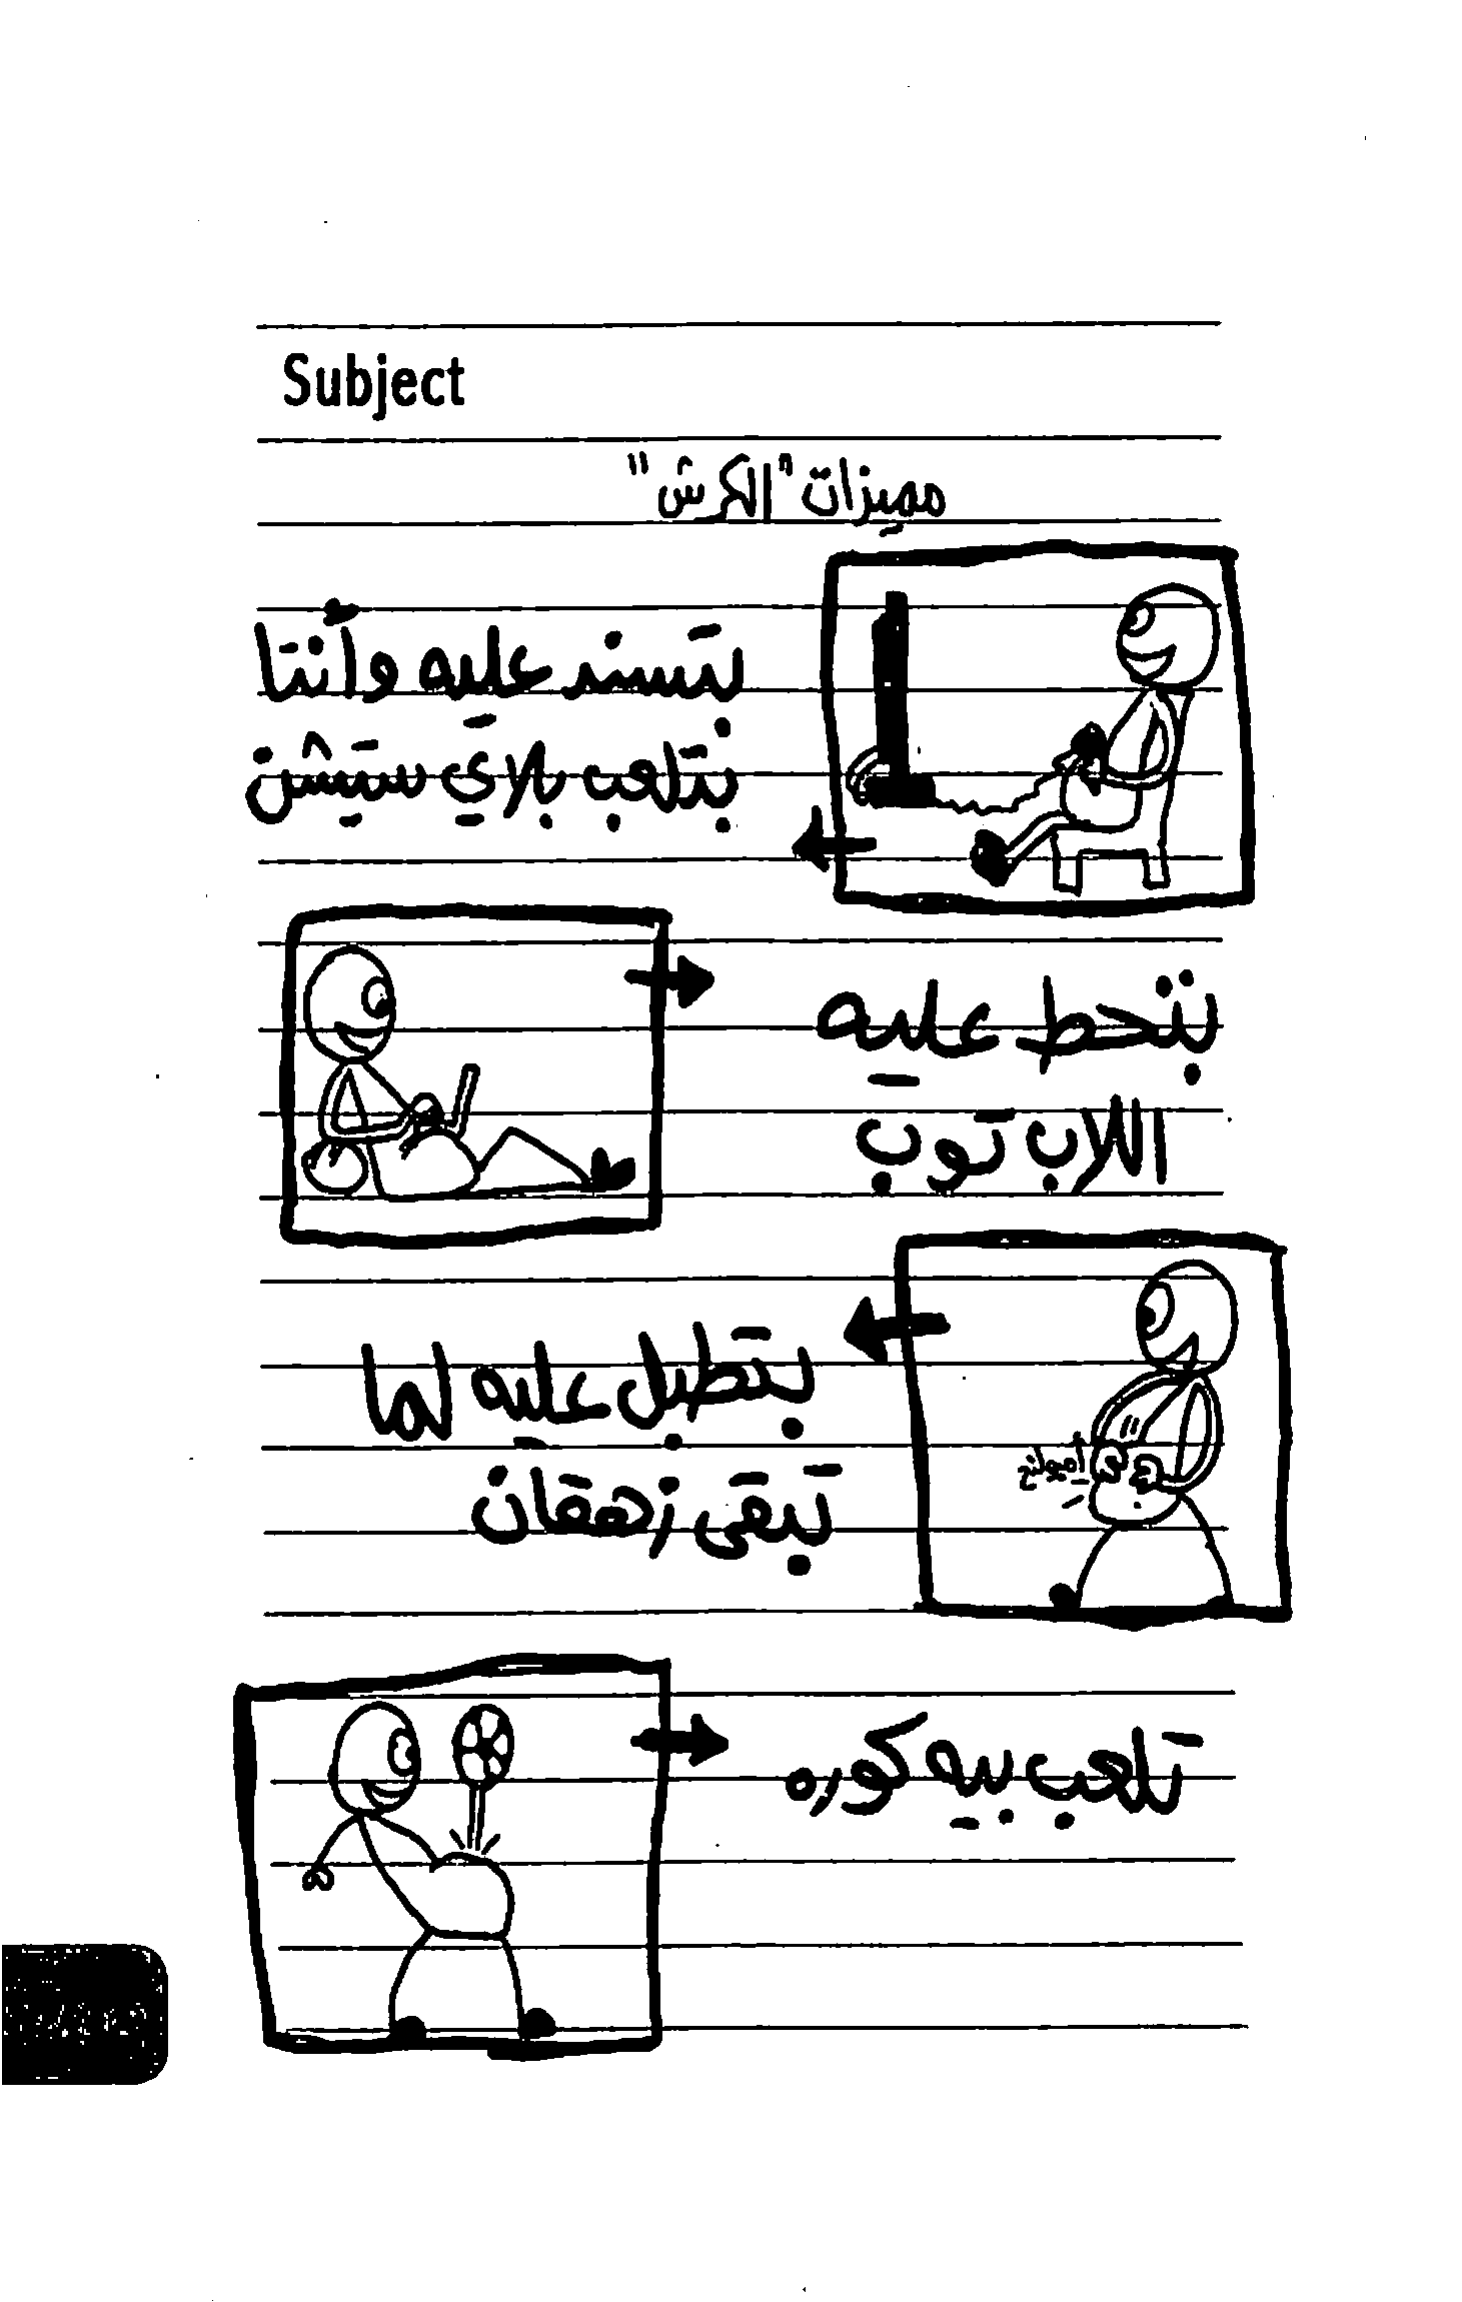 Subject
مميزات "الكرش"
بتسند عليه وأنتا
بتلعب بلاي ستيشن
بتحط عليه
اللاب توب
بتطبل عليه لما
تبقى زهقان
تلعب بيه كوره